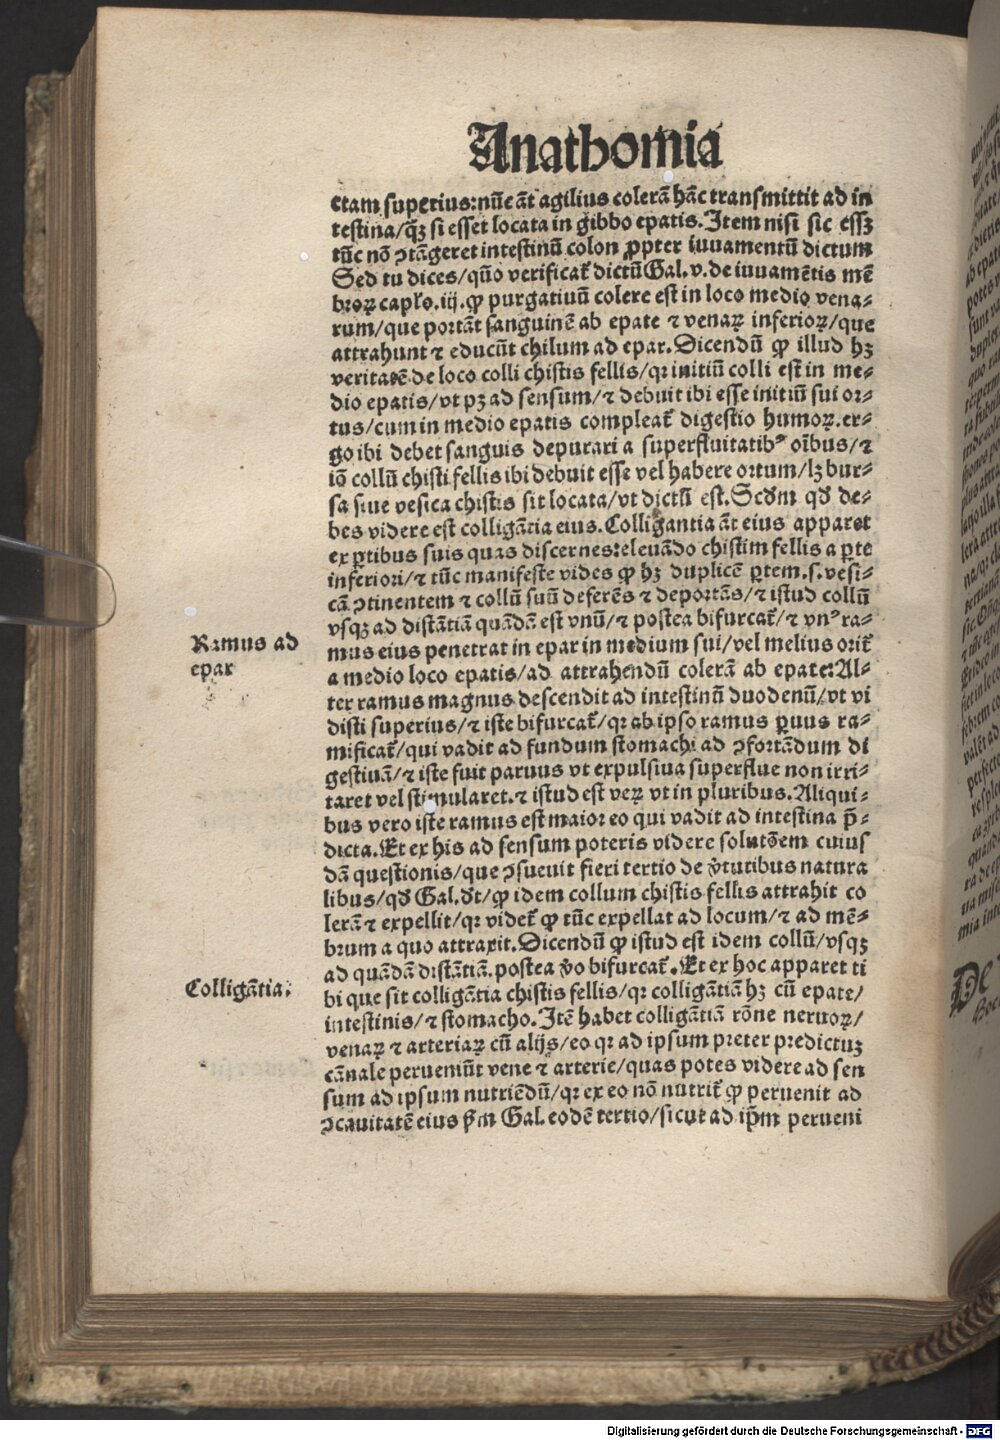 Anathomia
ctam superius:nūc āt agilius colerā hāc transmittit ad in
testina/q̄ꝫ si esset locata in gibbo epatis. Item nisi sic essꝫ
tūc nō ↄtāgeret intestinū colon ꝓpter iuuamentū dictum
Sed tu dices/quō verificat̄ dictū Gal. v. de iuuamētis mē
broꝝ capło. iij. ꝙ purgatiuū colere est in loco medio vena⸗
rum/que portāt sanguinē ab epate ⁊ venaꝝ inferioꝝ/que
attrahunt ⁊ educūt chilum ad epar. Dicendū ꝙ illud hꝫ
veritatē de loco colli chistis fellis/qꝛ initiū colli est in me⸗
dio epatis/vt pꝫ ad sensum/⁊ debuit ibi esse initiū sui or⸗
tus/cum in medio epatis compleat̄ digestio humoꝝ. er⸗
go ibi debet sanguis depurari a superfluitatibꝰ oībus/⁊
iō collū chisti fellis ibi debuit esse vel habere ortum/lꝫ bur⸗
sa siue vesica chistis sit locata/vt dictū est. Scd̄m qd̄ de⸗
bes videre est colligātia eius. Colligantia āt eius apparet
ex ꝑtibus suis quas discernes:eleuādo chistim fellis a ꝑte
inferiori/⁊ tūc manifeste vides ꝙ hꝫ duplicē ꝑtem. s. vesi⸗
cā ↄtinentem ⁊ collū suū deferēs ⁊ deportās/⁊ istud collū
vsqꝫ ad distātiā quādā est vnū/⁊ postea bifurcat̄/⁊ vnꝰ ra⸗
mus eius penetrat in epar in medium sui/vel melius orit̄
a medio loco epatis/ad attrahendū colerā ab epate:Al⸗
ter ramus magnus descendit ad intestinū duodenū/vt vi
disti superius/⁊ iste bifurcat̄/qꝛ ab ipso ramus ꝑuus ra⸗
mificat̄/qui vadit ad fundum stomachi ad ↄfortādum di
gestiuā/⁊ iste fuit paruus vt expulsiua superflue non irri⸗
taret vel stimularet. ⁊ istud est veꝝ vt in pluribus. Aliqui⸗
bus vero iste ramus est maior eo qui vadit ad intestina p̄⸗
dicta. Et ex his ad sensum poteris videre solutōem cuius
dā questionis/que ↄsueuit fieri tertio de v̄tutibus natura
libus/qd̄ Gal. dt̄/ꝙ idem collum chistis fellis attrahit co
lerā ⁊ expellit/qꝛ videt̄ ꝙ tūc expellat ad locum/⁊ ad mē⸗
brum a quo attraxit. Dicendū ꝙ istud est idem collū/vsqꝫ
ad quādā distātiā. postea v̄o bifurcat̄. Et ex hoc apparet ti
bi que sit colligātia chistis fellis/qꝛ colligātiā hꝫ cū epate/
intestinis/⁊ stomacho. Itē habet colligātiā rōne neruoꝝ/
venaꝝ ⁊ arteriaꝝ cū alijs/eo qꝛ ad ipsum preter predictuꝫ
cānale perueniūt vene ⁊ arterie/quas potes videre ad sen
sum ad ipsum nutriēdū/qꝛ ex eo nō nutrit̄ ꝙ peruenit ad
ↄcauitatē eius s̄m Gal. eodē tertio/sicut ad ip̄m perueni
Ramus ad
epar
Colligātia.
Digitalisierung gefördert durch die Deutsche Forschungsgemeinschaft - DFG